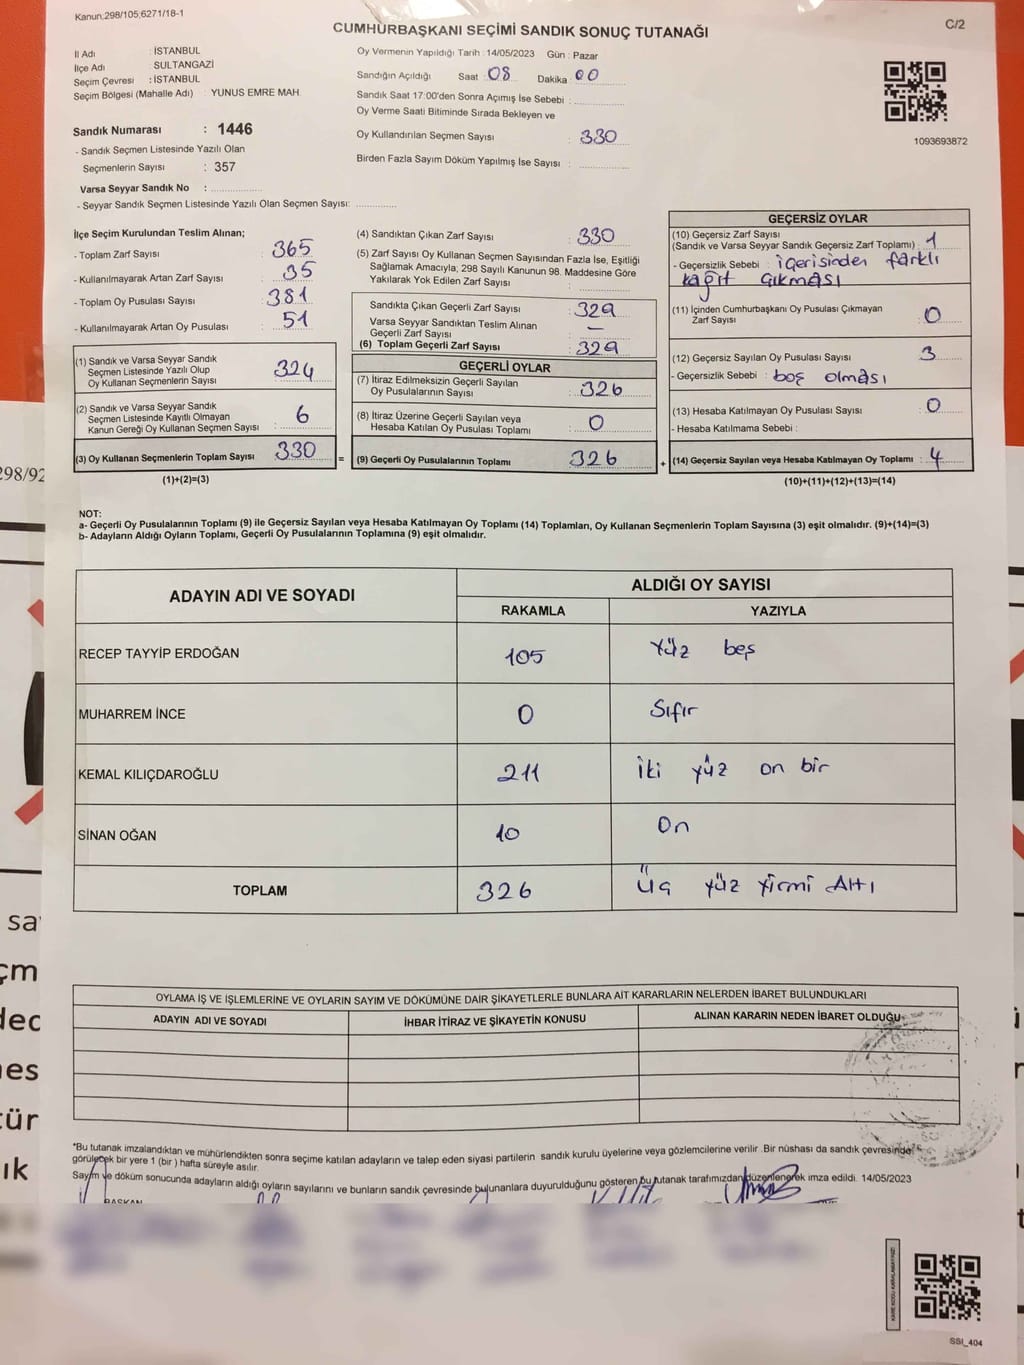 Kanun:298/105;6271/18-1
C/2
CUMHURBAŞKANI SEÇİMİ SANDIK SONUÇ TUTANAĞI
İl Adı : İSTANBUL
İlçe Adı : SULTANGAZİ
Seçim Çevresi : İSTANBUL
Seçim Bölgesi (Mahalle Adı) : YUNUS EMRE MAH.
Sandık Numarası : 1446
- Sandık Seçmen Listesinde Yazılı Olan
Seçmenlerin Sayısı : 357
Varsa Seyyar Sandık No : ................
- Seyyar Sandık Seçmen Listesinde Yazılı Olan Seçmen Sayısı: ............
Oy Vermenin Yapıldığı Tarih : 14/05/2023 Gün : Pazar
Sandığın Açıldığı Saat : 08 Dakika : 00
Sandık Saat 17:00'den Sonra Açımış İse Sebebi : ................
Oy Verme Saati Bitiminde Sırada Bekleyen ve
Oy Kullandırılan Seçmen Sayısı : 330
Birden Fazla Sayım Döküm Yapılmış İse Sayısı : ................
1093693872
İlçe Seçim Kurulundan Teslim Alınan;
- Toplam Zarf Sayısı : 365
- Kullanılmayarak Artan Zarf Sayısı : 35
- Toplam Oy Pusulası Sayısı : 381
- Kullanılmayarak Artan Oy Pusulası : 51
(1) Sandık ve Varsa Seyyar Sandık
Seçmen Listesinde Yazılı Olup
Oy Kullanan Seçmenlerin Sayısı : 324
(2) Sandık ve Varsa Seyyar Sandık
Seçmen Listesinde Kayıtlı Olmayan
Kanun Gereği Oy Kullanan Seçmen Sayısı : 6
(3) Oy Kullanan Seçmenlerin Toplam Sayısı : 330
(1)+(2)=(3)
=
(4) Sandıktan Çıkan Zarf Sayısı : 330
(5) Zarf Sayısı Oy Kullanan Seçmen Sayısından Fazla İse, Eşitliği
Sağlamak Amacıyla; 298 Sayılı Kanunun 98. Maddesine Göre
Yakılarak Yok Edilen Zarf Sayısı : ................
Sandıkta Çıkan Geçerli Zarf Sayısı : 329
Varsa Seyyar Sandıktan Teslim Alınan
Geçerli Zarf Sayısı : —
(6) Toplam Geçerli Zarf Sayısı : 329
GEÇERLİ OYLAR
(7) İtiraz Edilmeksizin Geçerli Sayılan
Oy Pusulalarının Sayısı : 326
(8) İtiraz Üzerine Geçerli Sayılan veya
Hesaba Katılan Oy Pusulası Toplamı : 0
(9) Geçerli Oy Pusulalarının Toplamı : 326
+
GEÇERSİZ OYLAR
(10) Geçersiz Zarf Sayısı
(Sandık ve Varsa Seyyar Sandık Geçersiz Zarf Toplamı) : 1
- Geçersizlik Sebebi : içerisinden farklı
kağıt çıkması
(11) İçinden Cumhurbaşkanı Oy Pusulası Çıkmayan
Zarf Sayısı : 0
(12) Geçersiz Sayılan Oy Pusulası Sayısı : 3
- Geçersizlik Sebebi : boş olması
(13) Hesaba Katılmayan Oy Pusulası Sayısı : 0
- Hesaba Katılmama Sebebi :
(14) Geçersiz Sayılan veya Hesaba Katılmayan Oy Toplamı : 4
(10)+(11)+(12)+(13)=(14)
NOT:
a- Geçerli Oy Pusulalarının Toplamı (9) ile Geçersiz Sayılan veya Hesaba Katılmayan Oy Toplamı (14) Toplamları, Oy Kullanan Seçmenlerin Toplam Sayısına (3) eşit olmalıdır. (9)+(14)=(3)
b- Adayların Aldığı Oyların Toplamı, Geçerli Oy Pusulalarının Toplamına (9) eşit olmalıdır.
ADAYIN ADI VE SOYADI
ALDIĞI OY SAYISI
RAKAMLA YAZIYLA
RECEP TAYYİP ERDOĞAN 105 Yüz beş
MUHARREM İNCE 0 Sıfır
KEMAL KILIÇDAROĞLU 211 iki yüz on bir
SİNAN OĞAN 10 On
TOPLAM 326 Üç yüz yirmi Altı
OYLAMA İŞ VE İŞLEMLERİNE VE OYLARIN SAYIM VE DÖKÜMÜNE DAİR ŞİKAYETLERLE BUNLARA AİT KARARLARIN NELERDEN İBARET BULUNDUKLARI
ADAYIN ADI VE SOYADI İHBAR İTİRAZ VE ŞİKAYETİN KONUSU ALINAN KARARIN NEDEN İBARET OLDUĞU
*Bu tutanak imzalandıktan ve mühürlendikten sonra seçime katılan adayların ve talep eden siyasi partilerin sandık kurulu üyelerine veya gözlemcilerine verilir .Bir nüshası da sandık çevresinde
görülecek bir yere 1 (bir ) hafta süreyle asılır.
Sayım ve döküm sonucunda adayların aldığı oyların sayılarını ve bunların sandık çevresinde bulunanlara duyurulduğunu gösteren bu tutanak tarafımızdan düzenlenerek imza edildi. 14/05/2023
BAŞKAN
KARE KODU KARALAMAYINIZ!
SSI_404
298/92
sa
çm
dec
nes
tür
ık